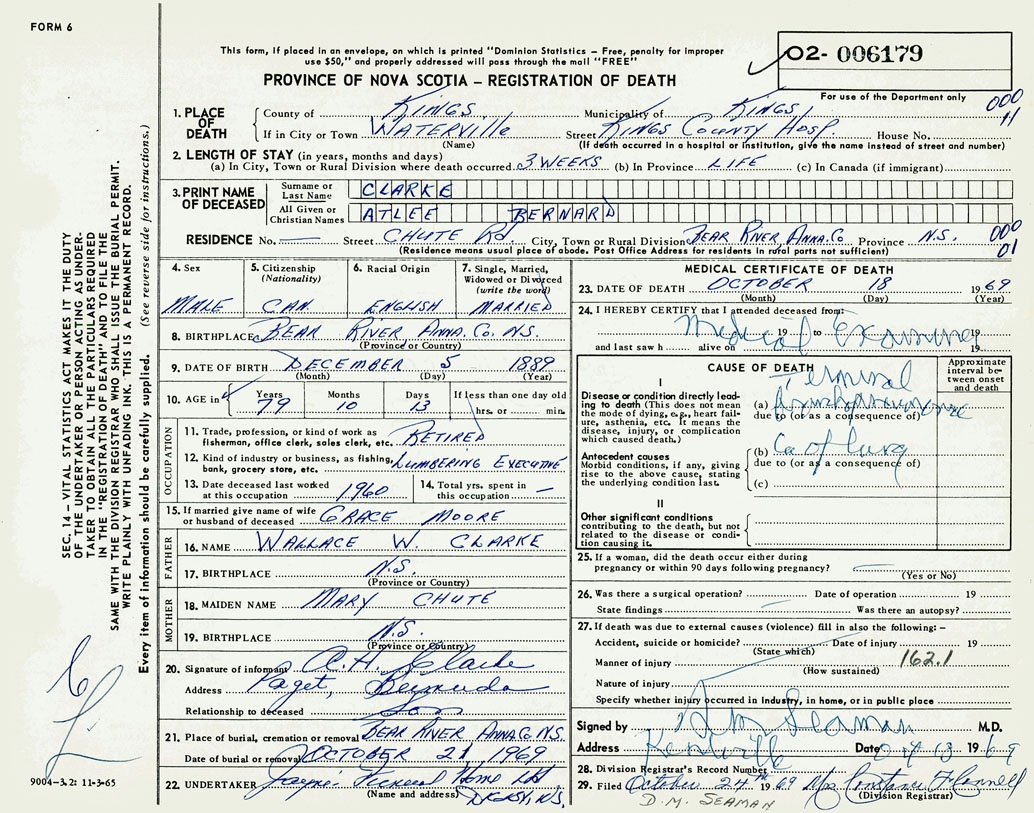 FORM 6
This form, if placed in an envelope, on which is printed "Dominion Statistics – Free, penalty for improper
use $50," and properly addressed will pass through the mail "FREE"
O2- 006179
PROVINCE OF NOVA SCOTIA – REGISTRATION OF DEATH
For use of the Department only
000
11
1. PLACE OF DEATH
County of KINGS Municipality of KINGS
If in City or Town WATERVILLE Street KINGS COUNTY HOSP. House No.
(Name) (If death occurred in a hospital or institution, give the name instead of street and number)
2. LENGTH OF STAY (in years, months and days)
(a) In City, Town or Rural Division where death occurred 3 WEEKS (b) In Province LIFE (c) In Canada (if immigrant)
3. PRINT NAME OF DECEASED
Surname or Last Name CLARKE
All Given or Christian Names ATLEE BERNARD
RESIDENCE No. — Street CHUTE Rd. City, Town or Rural Division BEAR RIVER ANNA. CO Province N.S. 000
01
(Residence means usual place of abode. Post Office Address for residents in rural parts not sufficient)
4. Sex
MALE
5. Citizenship (Nationality)
CAN.
6. Racial Origin
ENGLISH
7. Single, Married, Widowed or Divorced (write the word)
MARRIED
8. BIRTHPLACE BEAR RIVER, ANNA. CO. N.S.
(Province or Country)
9. DATE OF BIRTH DECEMBER 5 1889
(Month) (Day) (Year)
10. AGE in Years 79 Months 10 Days 13 If less than one day old hrs. or min.
OCCUPATION
11. Trade, profession, or kind of work as
fisherman, office clerk, sales clerk, etc. RETIRED
12. Kind of industry or business, as fishing,
bank, grocery store, etc. LUMBERING EXECUTIVE
13. Date deceased last worked
at this occupation 1960
14. Total yrs. spent in
this occupation —
15. If married give name of wife
or husband of deceased GRACE MOORE
FATHER
16. NAME WALLACE W. CLARKE
17. BIRTHPLACE N.S.
(Province or Country)
MOTHER
18. MAIDEN NAME MARY CHUTE
19. BIRTHPLACE N.S.
(Province or Country)
20. Signature of informant A.H. Clarke
Address Paget, Bermuda
Relationship to deceased Son
21. Place of burial, cremation or removal BEAR RIVER ANNA. CO. N.S.
Date of burial or removal OCTOBER 21 1969
22. UNDERTAKER Jayne Funeral Home Ltd
(Name and address) DIGBY, N.S.
MEDICAL CERTIFICATE OF DEATH
23. DATE OF DEATH OCTOBER 18 1969
(Month) (Day) (Year)
24. I HEREBY CERTIFY that I attended deceased from:
Medical Examiner 19 to 19
and last saw h alive on 19
CAUSE OF DEATH
Approximate interval between onset and death
I
Disease or condition directly leading to death (This does not mean
the mode of dying, e.g., heart failure, asthenia, etc. It means the
disease, injury, or complication
which caused death.)
(a) Terminal Bronchopneumonia
due to (or as a consequence of)
Antecedent causes
Morbid conditions, if any, giving
rise to the above cause, stating
the underlying condition last.
(b) Ca of lung
due to (or as a consequence of)
(c)
II
Other significant conditions
contributing to the death, but not
related to the disease or condition causing it.
25. If a woman, did the death occur either during
pregnancy or within 90 days following pregnancy? —
(Yes or No)
26. Was there a surgical operation? Date of operation 19
State findings Was there an autopsy?
27. If death was due to external causes (violence) fill in also the following: –
Accident, suicide or homicide? Date of injury 19
(State which)
Manner of injury 162.1
(How sustained)
Nature of injury
Specify whether injury occurred in Industry, in home, or in public place
Signed by D M Seaman M.D.
Address Kentville Date 1969
28. Division Registrar's Record Number
29. Filed October 24th 1969 Mrs Constance
(Division Registrar)
D.M. SEAMAN
SEC. 14 – VITAL STATISTICS ACT MAKES IT THE DUTY
OF THE UNDERTAKER OR PERSON ACTING AS UNDER-
TAKER TO OBTAIN ALL THE PARTICULARS REQUIRED
IN THE "REGISTRATION OF DEATH" AND TO FILE THE
SAME WITH THE DIVISION REGISTRAR WHO SHALL ISSUE THE BURIAL PERMIT.
WRITE PLAINLY WITH UNFADING INK. THIS IS A PERMANENT RECORD.
Every item of information should be carefully supplied. (See reverse side for instructions.)
9004–3.2: 11-3-65